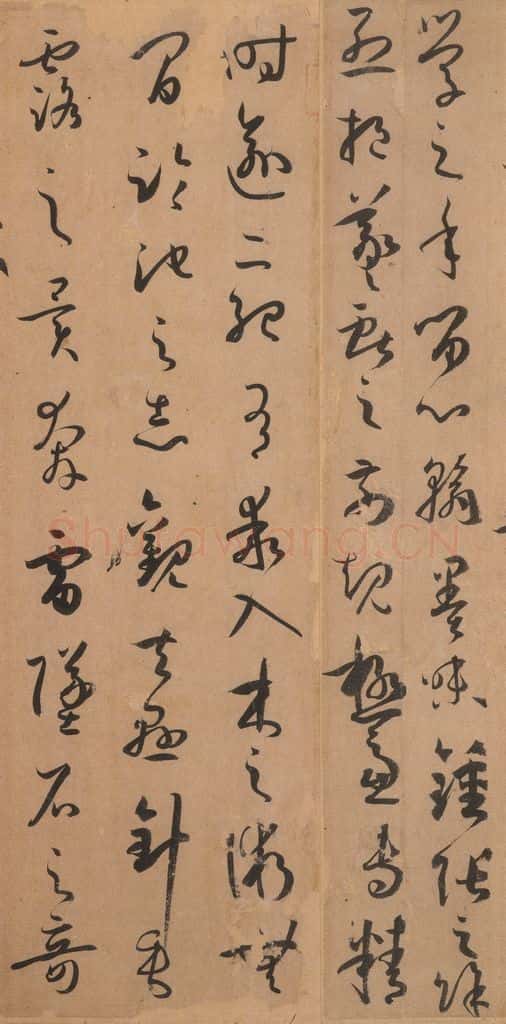 学之年留心翰墨味鍾張之餘
烈挹羲獻之前規極慮專精
時逾二紀有乖入木之術無
間臨池之志觀夫懸針垂
露之異奔雷墜石之奇
Shufawang.CN